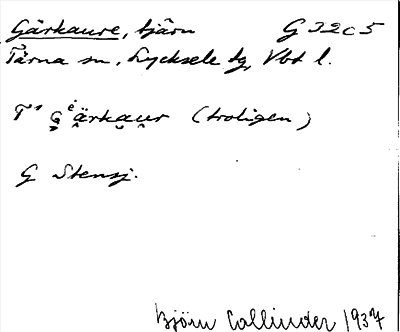 Gärkaure, tjärn G32c5
Tärna sn, Lycksele tg, Vbt l.
(troligen)
G Stensj.
Björn Collinder 1937